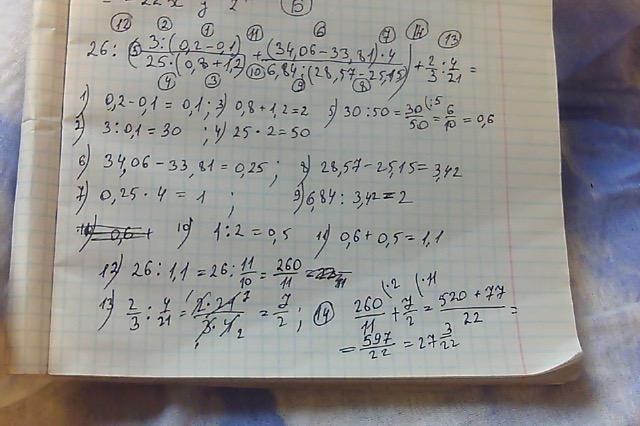 26 : (3 : (0,2 − 0,1) / 25 · (0,8 + 1,2) + (34,06 − 33,81) · 4 / 6,84 : (28,57 − 25,15)) + 2/3 : 4/21 =
1) 0,2 − 0,1 = 0,1 ; 3) 0,8 + 1,2 = 2 5) 30 : 50 = 30/50 (:5 = 6/10 = 0,6
2) 3 : 0,1 = 30 ; 4) 25 · 2 = 50
6) 34,06 − 33,81 = 0,25 ; 8) 28,57 − 25,15 = 3,42
7) 0,25 · 4 = 1 ; 9) 6,84 : 3,42 = 2
10) 1 : 2 = 0,5 11) 0,6 + 0,5 = 1,1
12) 26 : 1,1 = 26 : 11/10 = 260/11 =
13) 2/3 : 4/21 = 2 · 21 / 3 · 4 = 7/2 ; 14 260/11 (·2 + 7/2 (·11 = 520 + 77 / 22 =
= 597/22 = 27 3/22